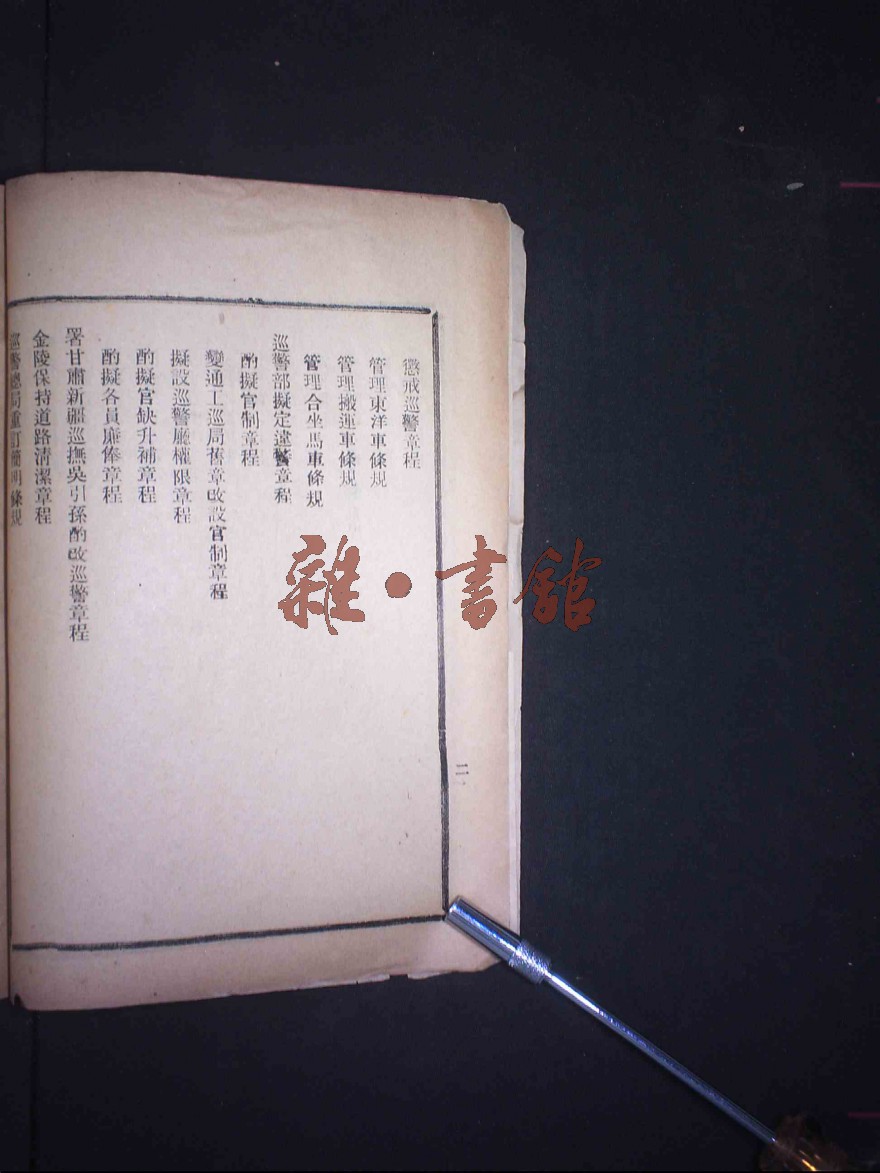 懲戒巡警章程
管理東洋車條規
管理搬運車條規
管理合坐馬車條規
巡警部擬定違警章程
酌擬官制章程
變通工巡局舊章改設官制章程
擬設巡警廳權限章程
酌擬官缺升補章程
酌擬各員廉俸章程
署甘肅新疆巡撫吳引孫酌改巡警章程
金陵保持道路清潔章程
巡警總局重訂簡明條規
二一
雜·書館